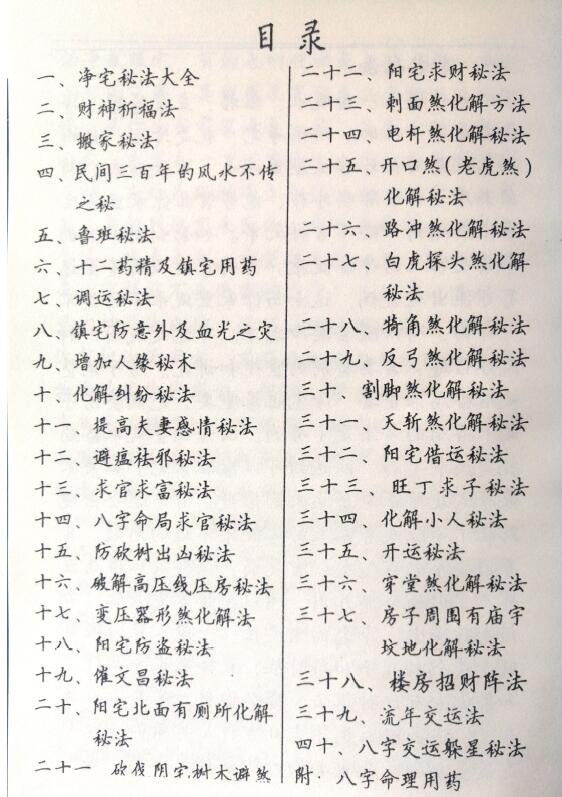 目录
一、净宅秘法大全
二、财神祈福法
三、搬家秘法
四、民间三百年的风水不传
之秘
五、鲁班秘法
六、十二药精及镇宅用药
七、调运秘法
八、镇宅防意外及血光之灾
九、增加人缘秘术
十、化解纠纷秘法
十一、提高夫妻感情秘法
十二、避瘟祛邪秘法
十三、求官求富秘法
十四、八字命局求官秘法
十五、防砍树出凶秘法
十六、破解高压线压房秘法
十七、变压器形煞化解法
十八、阳宅防盗秘法
十九、催文昌秘法
二十、阳宅北面有厕所化解
秘法
二十一 砍伐阴宅树木避煞
二十二、阳宅求财秘法
二十三、刺面煞化解方法
二十四、电杆煞化解秘法
二十五、开口煞(老虎煞)
化解秘法
二十六、路冲煞化解秘法
二十七、白虎探头煞化解
秘法
二十八、犄角煞化解秘法
二十九、反弓煞化解秘法
三十、割脚煞化解秘法
三十一、天斩煞化解秘法
三十二、阳宅借运秘法
三十三、旺丁求子秘法
三十四、化解小人秘法
三十五、开运秘法
三十六、穿堂煞化解秘法
三十七、房子周围有庙宇
坟地化解秘法
三十八、楼房招财阵法
三十九、流年交运法
四十、八字交运躲星秘法
附·八字命理用药